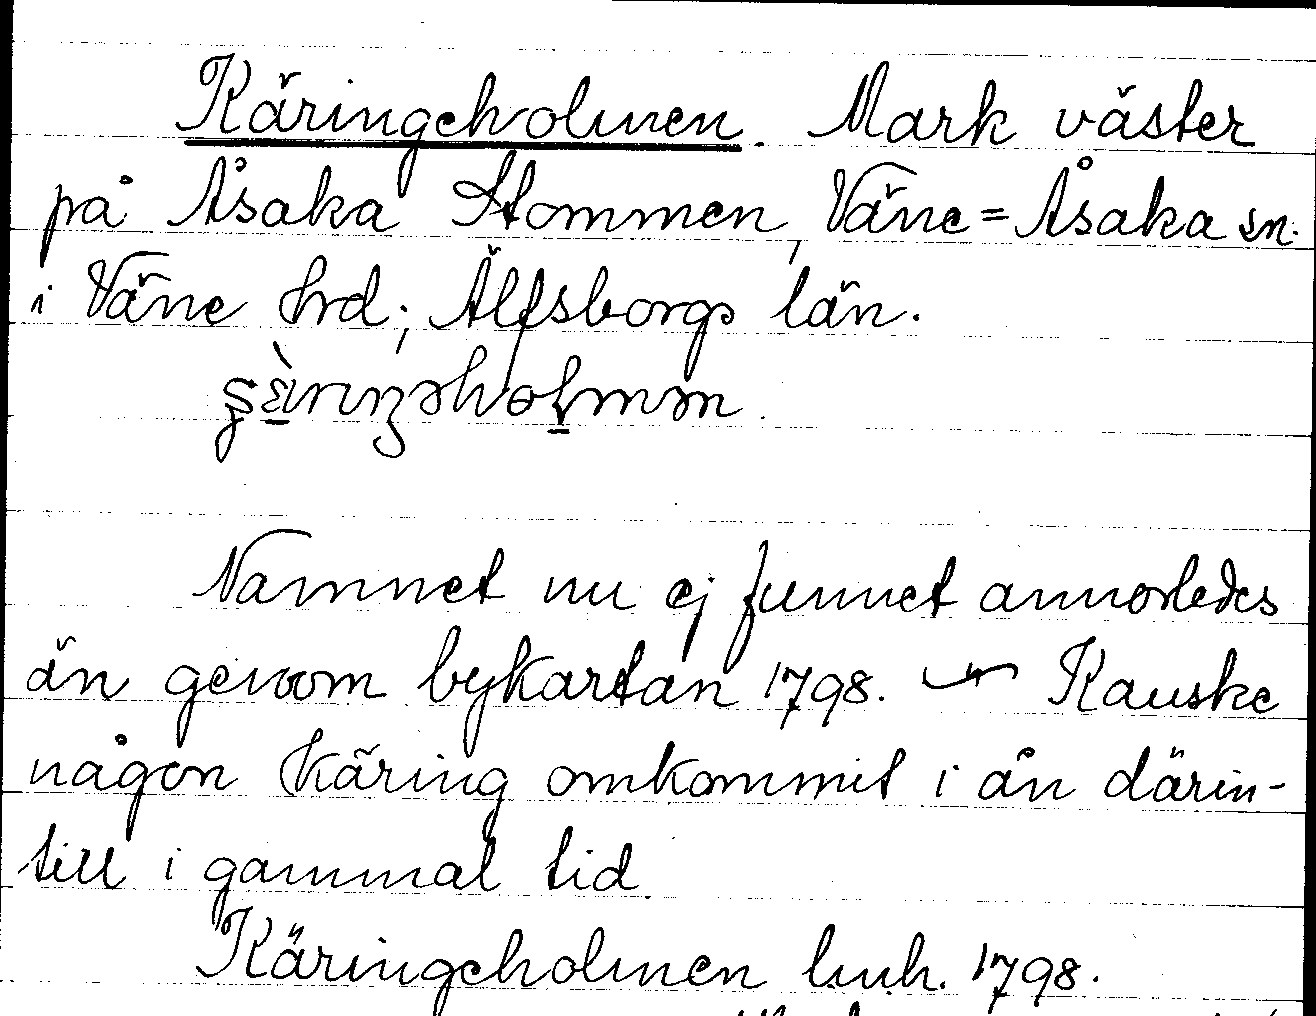 Käringeholmen. Mark väster
på Åsaka Stommen, Väne=Åsaka sn.
i Väne hrd; Älfsborgs län.
Namnet nu ej funnet annorledes
än genom bykartan 1798. Kanske
någon käring omkommit i ån därin-
till i gammal tid.
Käringeholmen lmh. 1798.